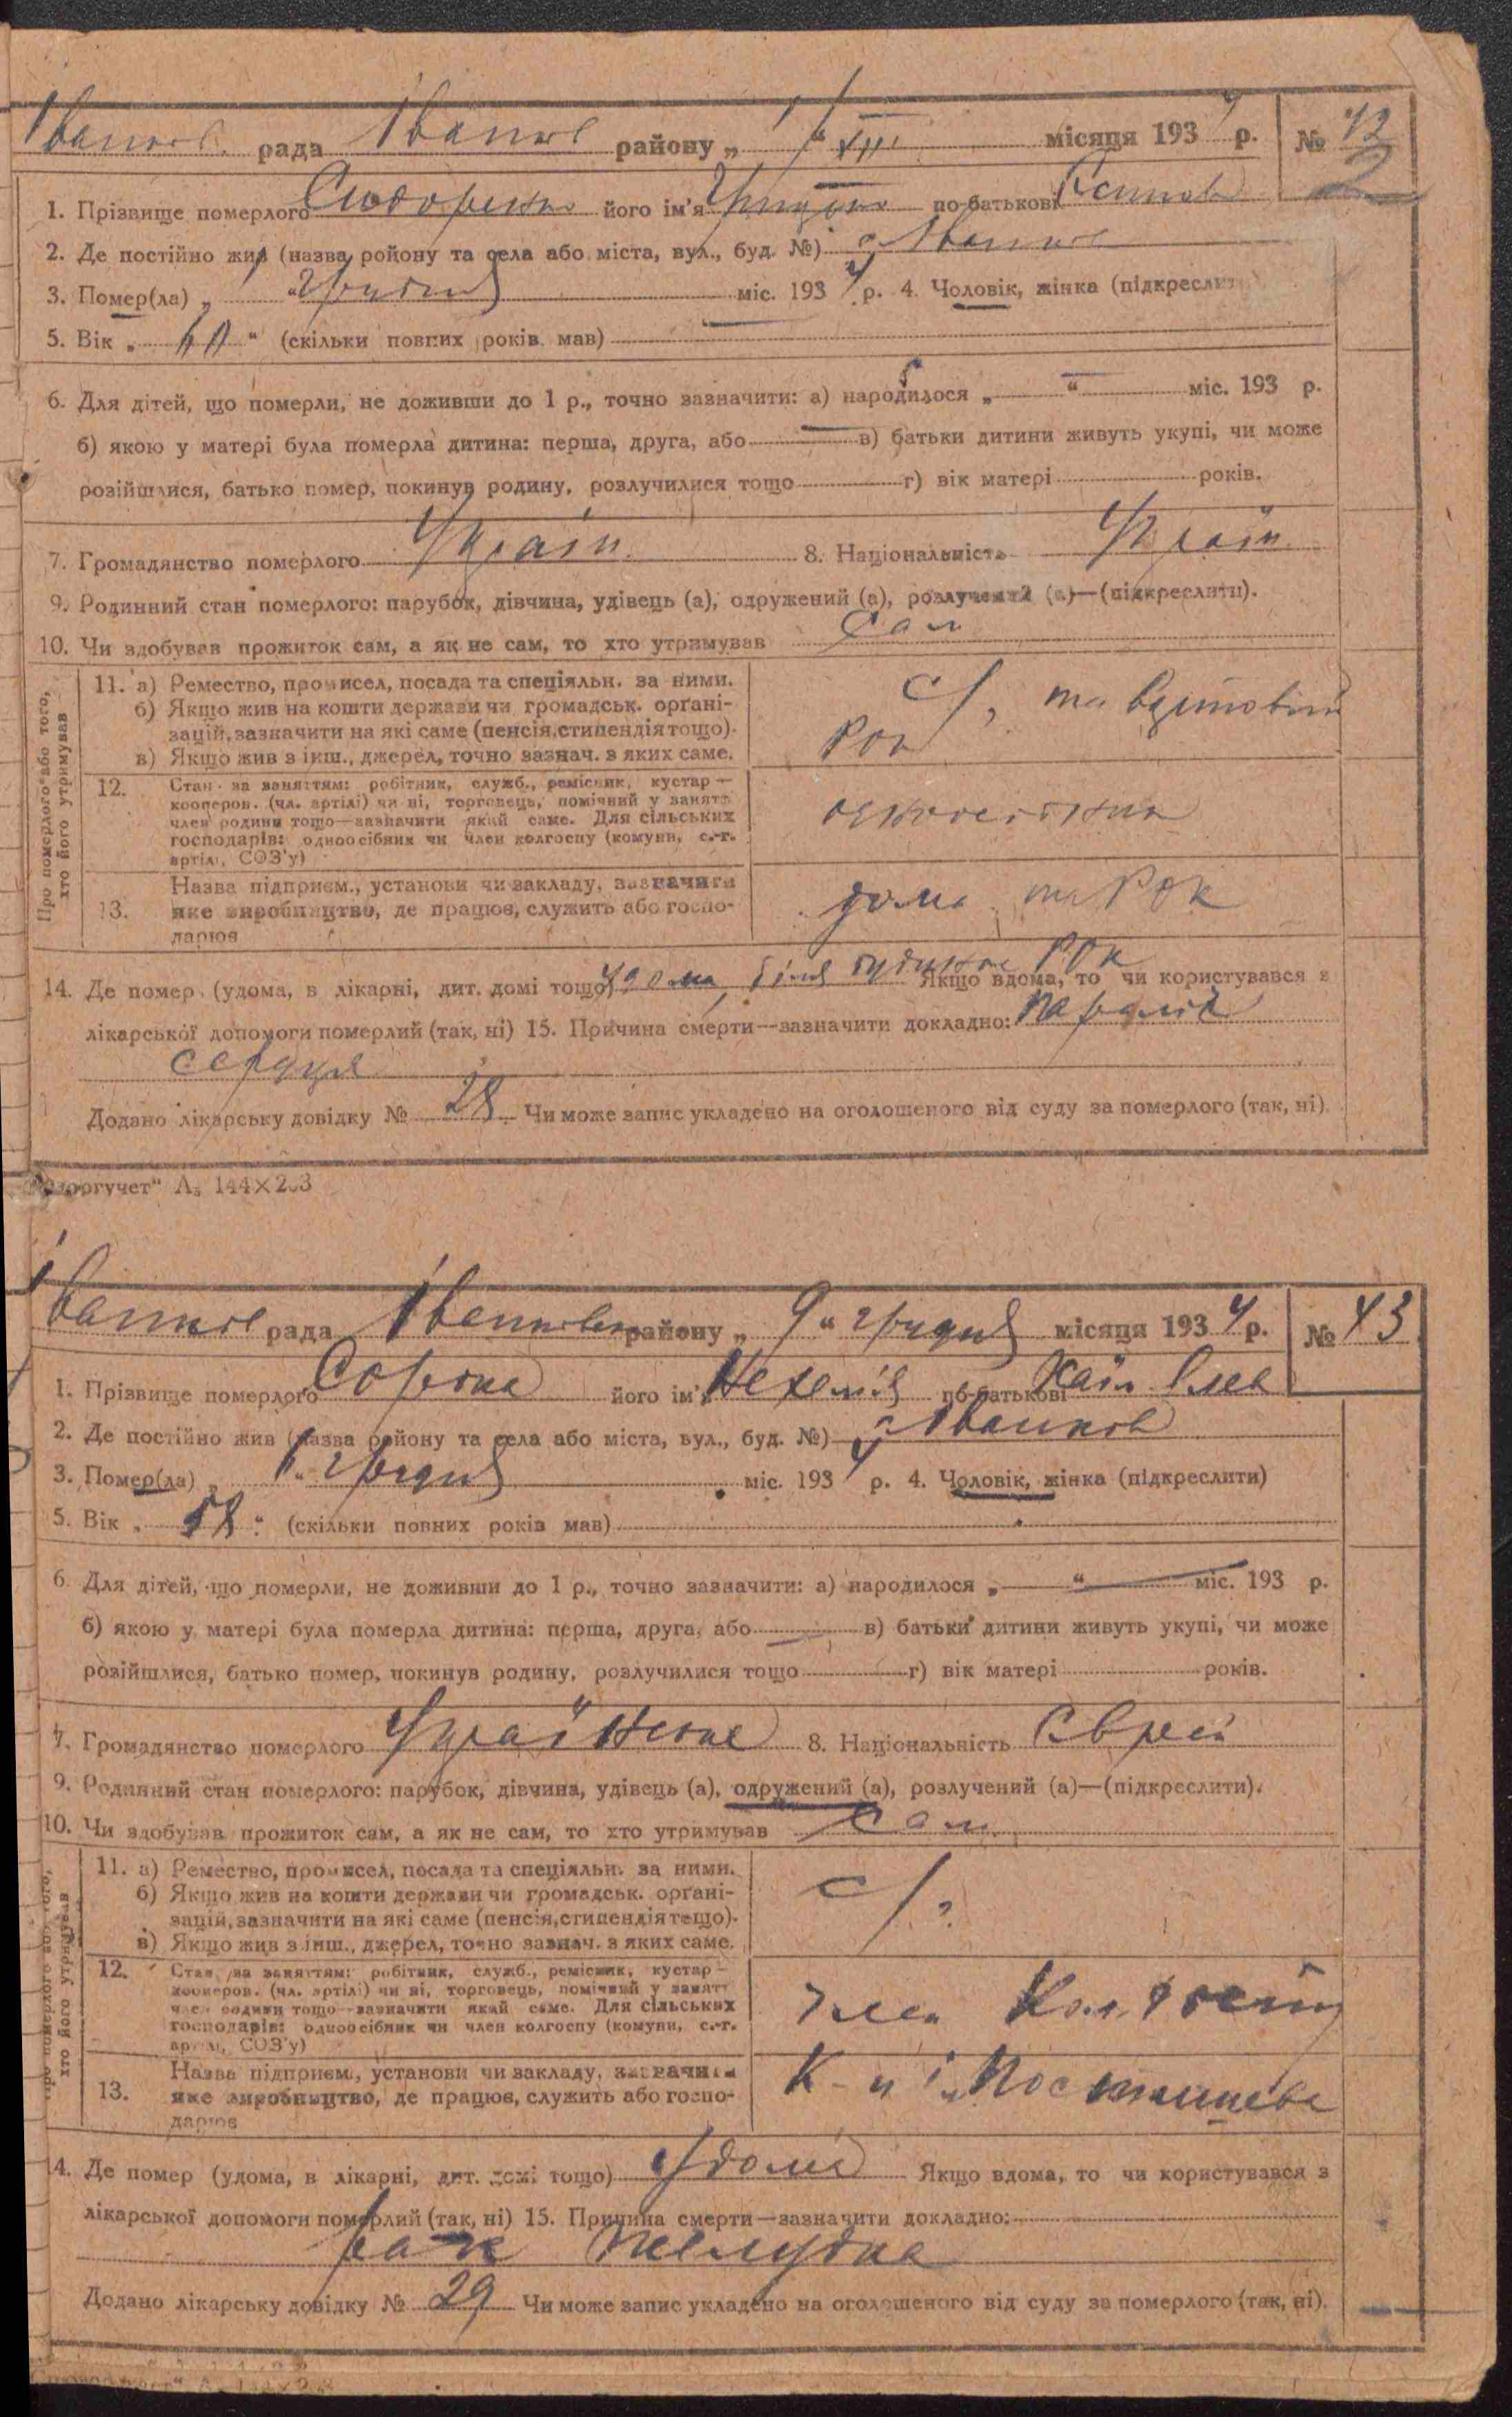 Іванків. рада Іванків району „ 1 “ XII місяця 1934 р. № 42
2
1. Прізвище померлого Сидоренко його ім'я Грицько по-батькові
2. Де постійно жив (назва ройону та села або міста, вул., буд. №) с Іванків
3. Помер(ла) „ “ Грудня міс. 1934 р. 4. Чоловік, жінка (підкреслит
5. Вік „ 60 “ (скільки повних років мав)
6. Для дітей, що померли, не доживши до 1 р., точно зазначити: а) народилося „ — “ міс. 193 р.
б) якою у матері була померла дитина: перша, друга, або — в) батьки дитини живуть укупі, чи може
розійшлися, батько помер, покинув родину, розлучилися тощо г) вік матері років.
7. Громадянство померлого Україн. 8. Національність Україн.
9. Родинний стан померлого: парубок, дівчина, удівець (а), одружений (а), розлучений (а)—(підкреслити).
10. Чи здобував прожиток сам, а як не сам, то хто утримував Сам
Про померлого або того, хто його утримував
11. а) Ремество, промисел, посада та спеціяльн. за ними.
б) Якщо жив на кошти держави чи громадськ. орґані-
зацій, зазначити на які саме (пенсія, стипендія тощо).
в) Якщо жив з інш., джерел, точно зазнач. з яких саме.
С/г та
РОК
12. Стан за заняттям: робітник, служб., ремісник, кустар—
кооперов. (чл. артілі) чи ні, торговець, помічний у занятт
член родини тощо—зазначити який саме. Для сільських
господарів: одноосібник чи член колгоспу (комуни, с.-г.
артілі, СОЗ'у)
13. Назва підприєм., установи чи закладу, зазначити
яке виробництво, де працює, служить або госпо-
дарює
дома та РОК
14. Де помер (удома, в лікарні, дит. домі тощо) удома, біля будинка РОК Якщо вдома, то чи користувався з
лікарської допомоги померлий (так, ні) 15. Причина смерти—зазначити докладно: Параліч
серця
Додано лікарську довідку № 28 Чи може запис укладено на оголошеного від суду за померлого (так, ні).
оргучет“ А₅ 144×203
Іванків рада Іванківськ району „ 9 “ Грудня місяця 1934 р. № 43
1. Прізвище померлого Сорока його ім'я Нехемія по-батькові Хаїм
2. Де постійно жив (назва ройону та села або міста, вул., буд. №) с Іванків
3. Помер(ла) „ “ Грудня міс. 1934 р. 4. Чоловік, жінка (підкреслити)
5. Вік „ 58 “ (скільки повних років мав)
6. Для дітей, що померли, не доживши до 1 р., точно зазначити: а) народилося „ — “ міс. 193 р.
б) якою у матері була померла дитина: перша, друга, або — в) батьки дитини живуть укупі, чи може
розійшлися, батько помер, покинув родину, розлучилися тощо г) вік матері років.
7. Громадянство померлого Українське 8. Національність Єврей
9. Родинний стан померлого: парубок, дівчина, удівець (а), одружений (а), розлучений (а)—(підкреслити).
10. Чи здобував прожиток сам, а як не сам, то хто утримував Сам
Про померлого або того, хто його утримував
11. а) Ремество, промисел, посада та спеціяльн. за ними.
б) Якщо жив на кошти держави чи громадськ. орґані-
зацій, зазначити на які саме (пенсія, стипендія тощо).
в) Якщо жив з інш., джерел, точно зазнач. з яких саме.
С/г
12. Стан за заняттям: робітник, служб., ремісник, кустар—
кооперов. (чл. артілі) чи ні, торговець, помічний у занятт
член родини тощо—зазначити який саме. Для сільських
господарів: одноосібник чи член колгоспу (комуни, с.-г.
артілі, СОЗ'у)
Член Колгоспу
13. Назва підприєм., установи чи закладу, зазначити
яке виробництво, де працює, служить або госпо-
дарює
К-п ім Постишева
14. Де помер (удома, в лікарні, дит. домі тощо) Удома Якщо вдома, то чи користувався з
лікарської допомоги померлий (так, ні) 15. Причина смерти—зазначити докладно:
рак желудка
Додано лікарську довідку № 29 Чи може запис укладено на оголошеного від суду за померлого (так, ні).